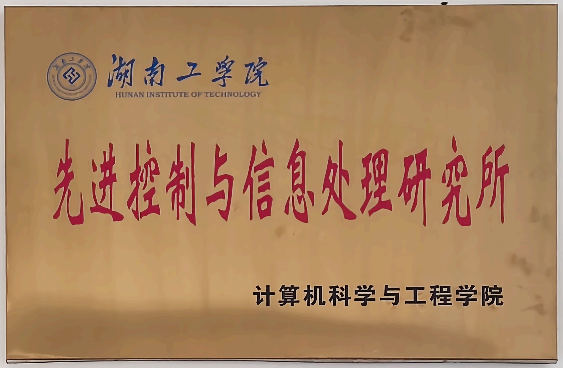 湖南工学院
HUNAN INSTITUTE OF TECHNOLOGY
先进控制与信息处理研究所
计算机科学与工程学院